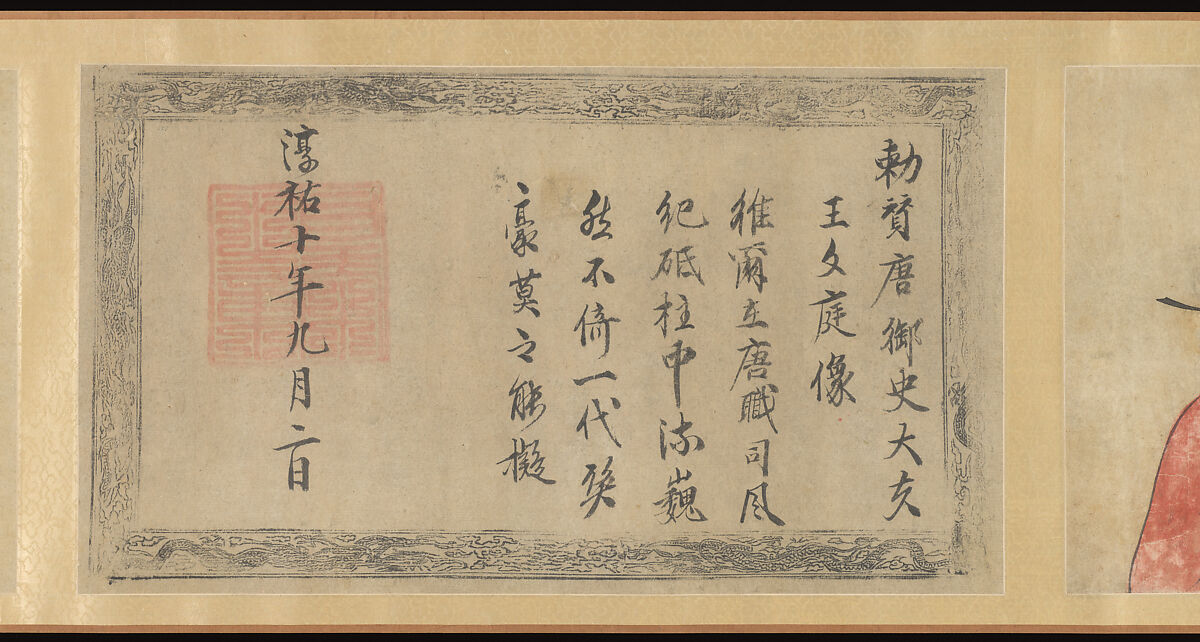 勅賛唐御史大夫
王文庭像
維爾立唐職司風
紀砥柱中流巍
然不倚一代英
豪莫之能擬
淳祐十年九月二日